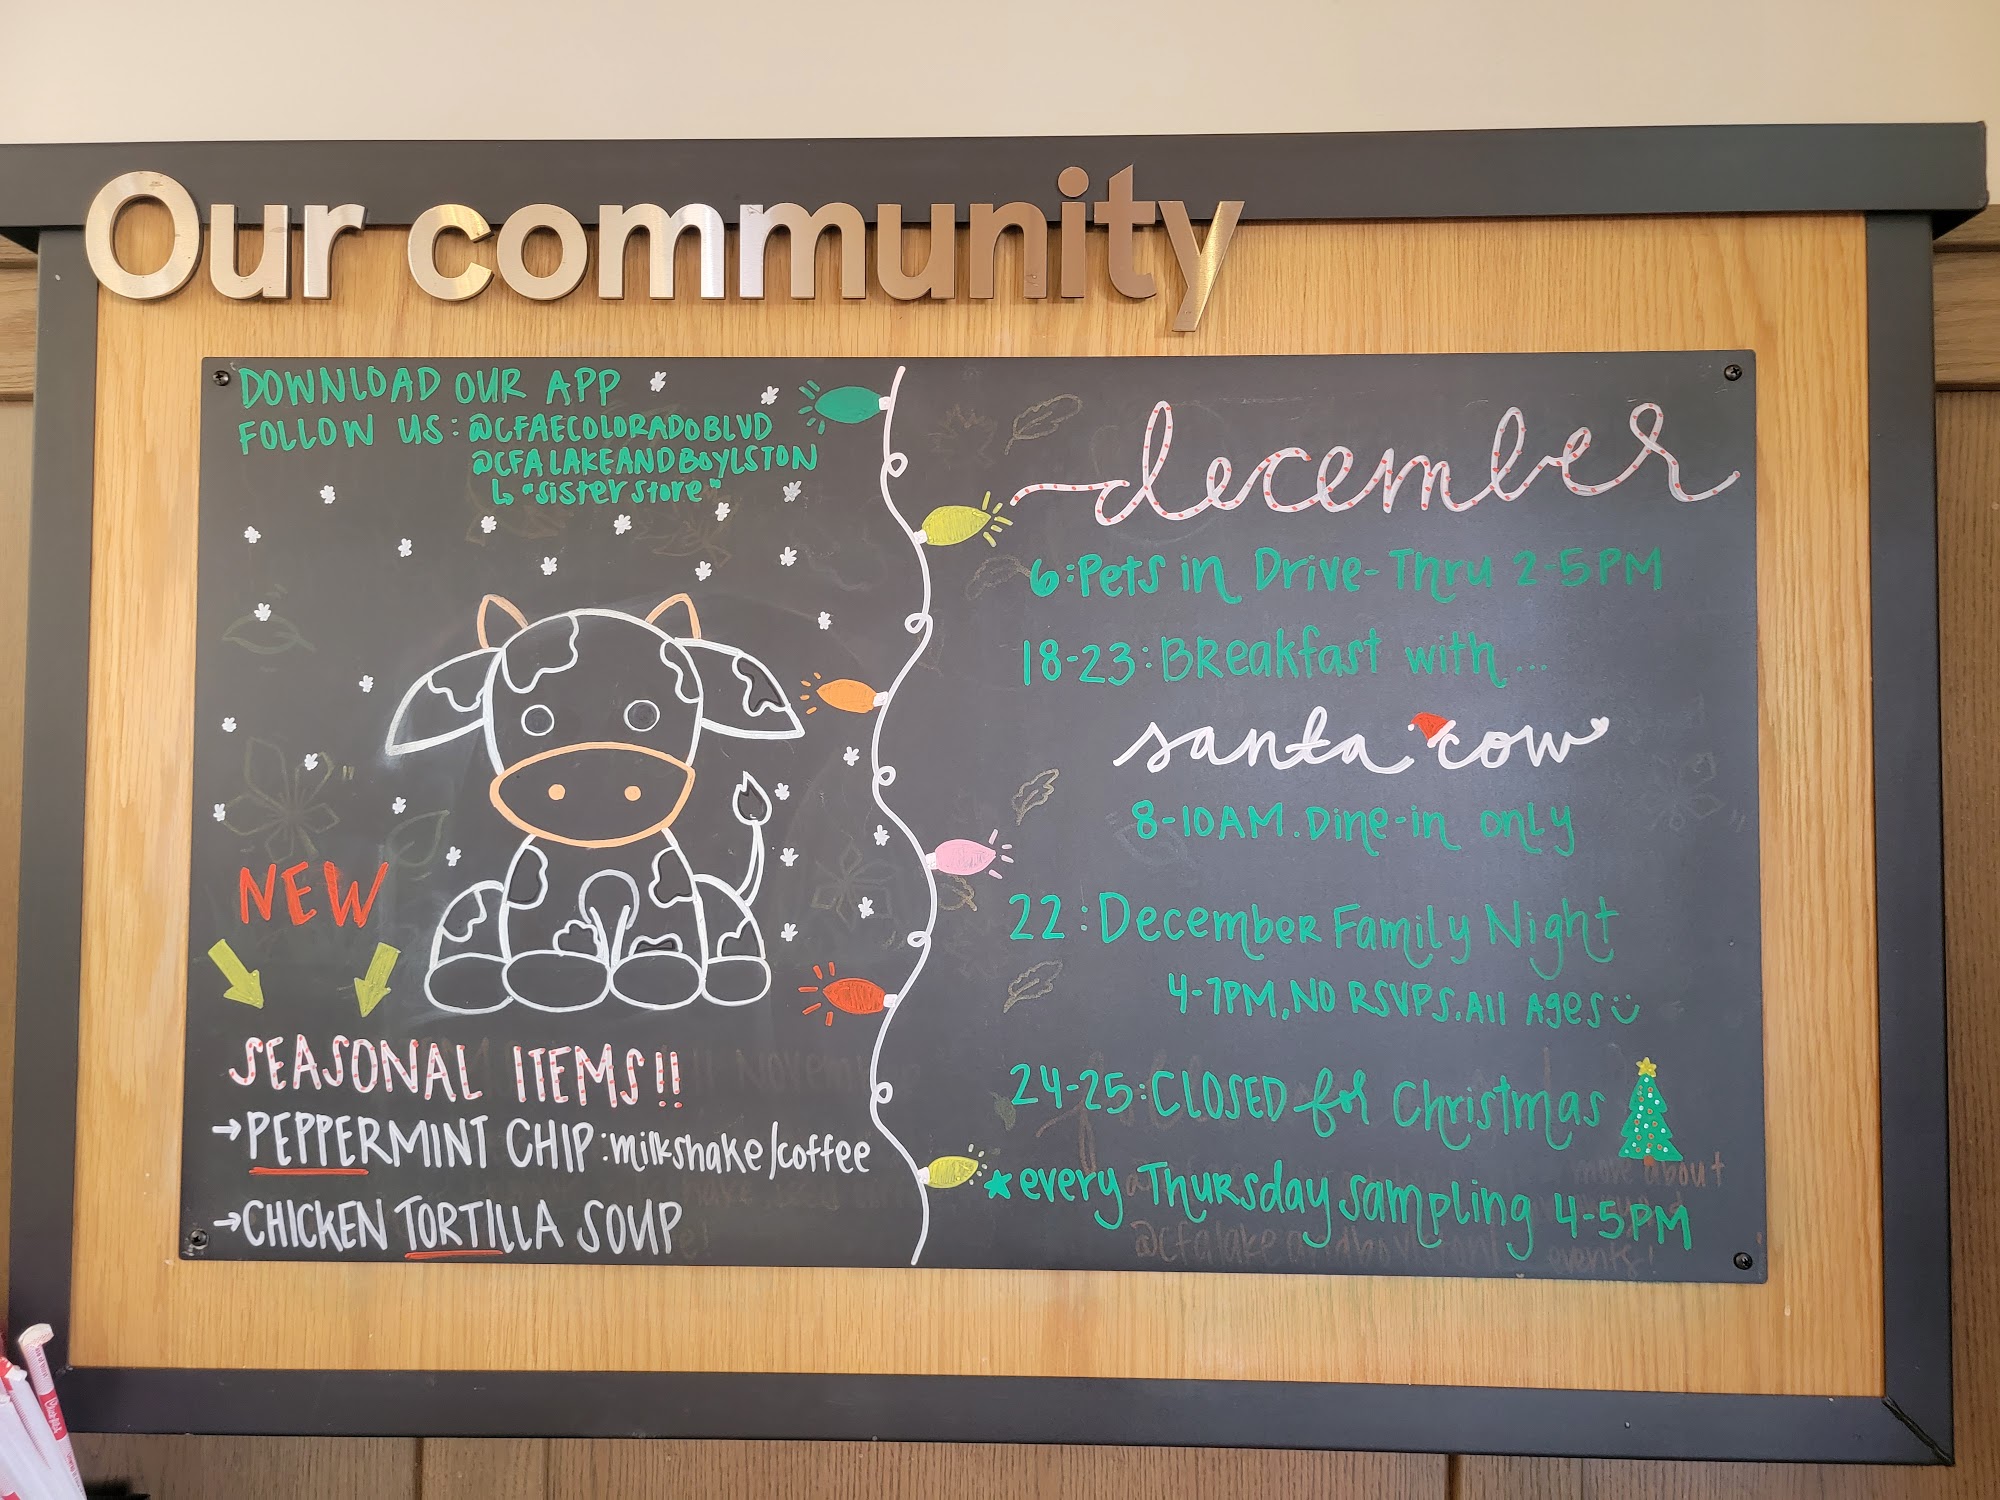 Our community
DOWNLOAD OUR APP
FOLLOW US: @CFAECOLORADOBLVD
@CFALAKEANDBOYLSTON
↳ "sister store"
NEW
SEASONAL ITEMS!!
→PEPPERMINT CHIP: milkshake/coffee
→CHICKEN TORTILLA SOUP
december
6: Pets in Drive-Thru 2-5PM
18-23: Breakfast with...
santa cow
8-10AM. Dine-in only
22: December Family Night
4-7PM, NO RSVPS. All Ages
24-25: CLOSED for Christmas
★every Thursday sampling 4-5PM
more about
@cfalakeandboylston
events!